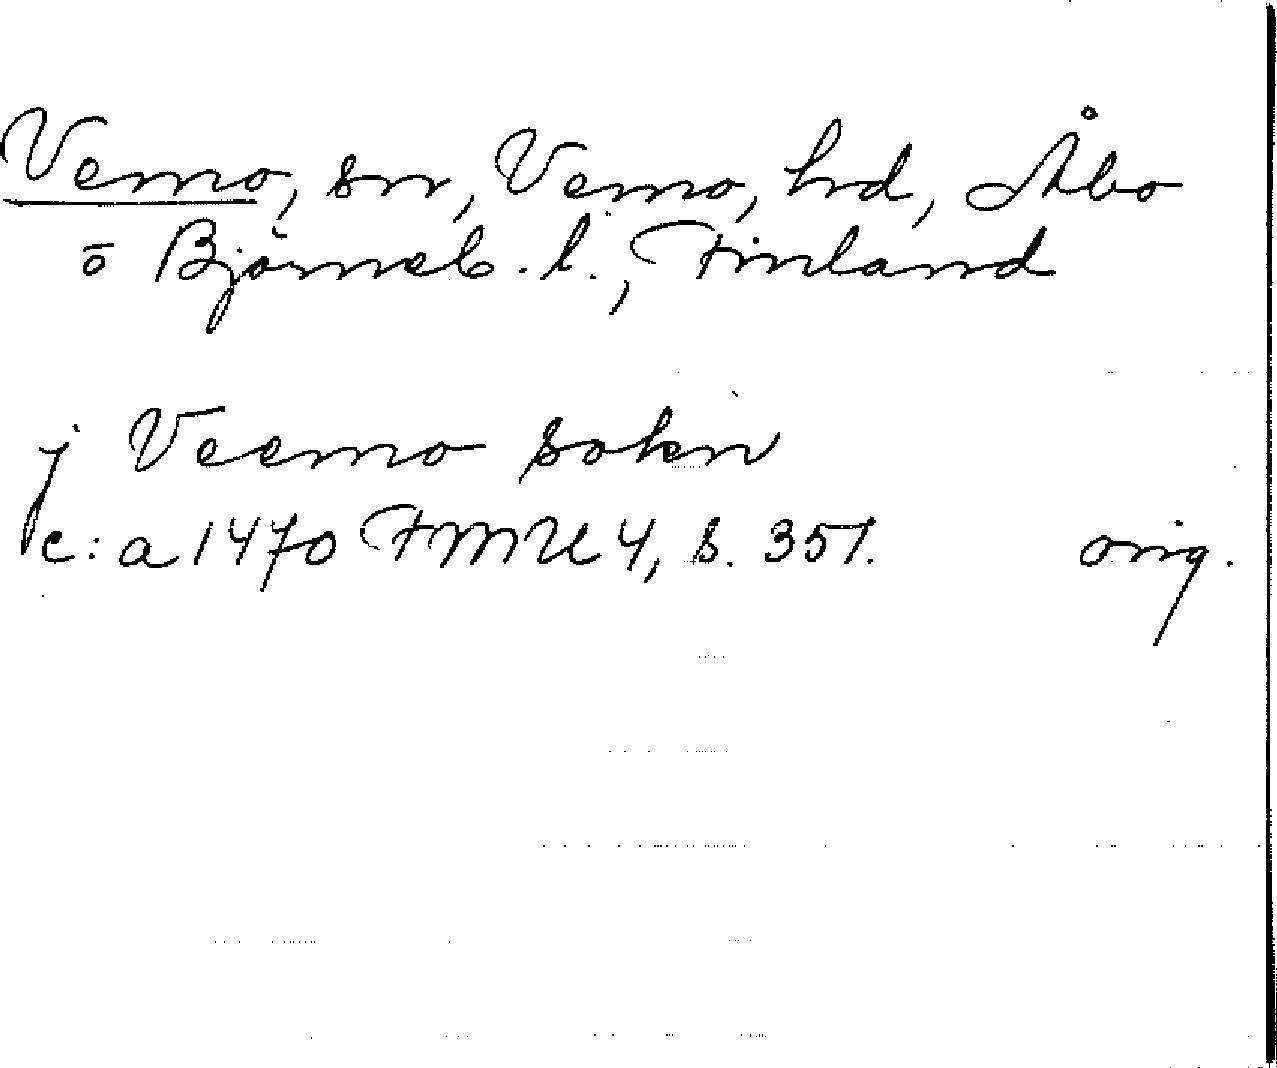 Vemo, sn, Vemo, hd, Åbo
ō Björneb. l., Finland
j Veemo sokn
c:a 1470 FMU 4, s. 351. orig.